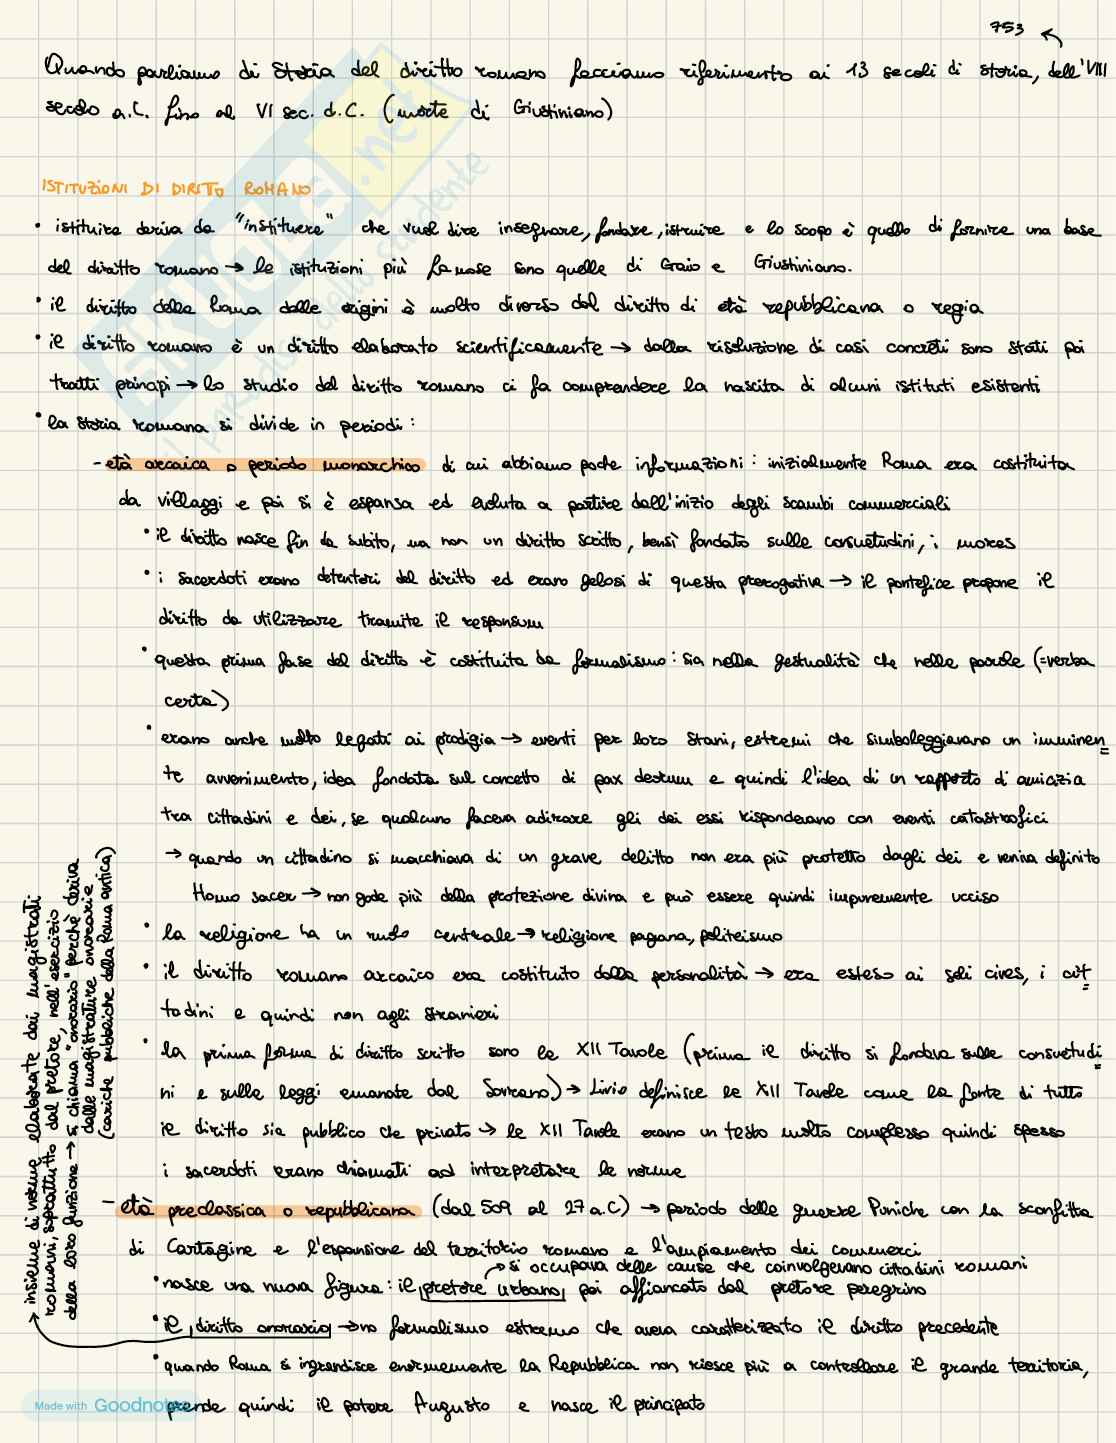 753
Quando parliamo di Storia del diritto romano facciamo riferimento ai 13 secoli di storia, dell'VIII
secolo a.C. fino al VI sec. d.C. (morte di Giustiniano)
ISTITUZIONI DI DIRITTO ROMANO
• istituire deriva da "instituere" che vuol dire insegnare, fondare, istruire e lo scopo è quello di fornire una base
del diritto romano → le istituzioni più famose sono quelle di Gaio e Giustiniano.
• il diritto della Roma delle origini è molto diverso dal diritto di età repubblicana o regia
• il diritto romano è un diritto elaborato scientificamente → dalla risoluzione di casi concreti sono stati poi
tratti principi → lo studio del diritto romano ci fa comprendere la nascita di alcuni istituti esistenti
• la storia romana si divide in periodi:
- età arcaica o periodo monarchico di cui abbiamo poche informazioni: inizialmente Roma era costituita
da villaggi e poi si è espansa ed evoluta a partire dall'inizio degli scambi commerciali
• il diritto nasce fin da subito, ma non un diritto scritto, bensì fondato sulle consuetudini, i mores
• i sacerdoti erano detentori del diritto ed erano gelosi di questa prerogativa → il pontefice propone il
diritto da utilizzare tramite il responsum
• questa prima fase del diritto è costituita da formalismo: sia nella gestualità che nelle parole (=verba
certa)
• erano anche molto legati ai prodigia → eventi per loro strani, estremi che simboleggiavano un imminen
te avvenimento, idea fondata sul concetto di pax deorum e quindi l'idea di un rapporto di amicizia
tra cittadini e dei, se qualcuno faceva adirare gli dei essi rispondevano con eventi catastrofici
→ quando un cittadino si macchiava di un grave delitto non era più protetto dagli dei e veniva definito
Homo sacer → non gode più della protezione divina e può essere quindi impunemente ucciso
• la religione ha un ruolo centrale → religione pagana, politeismo
• il diritto romano arcaico era costituito dalla personalità → era esteso ai soli cives, i cit
tadini e quindi non agli stranieri
• la prima forma di diritto scritto sono le XII Tavole (prima il diritto si fondava sulle consuetudi
ni e sulle leggi emanate dal Sovrano) → Livio definisce le XII Tavole come la fonte di tutto
il diritto sia pubblico che privato → le XII Tavole erano un testo molto complesso quindi spesso
i sacerdoti erano chiamati ad interpretare le norme
- età preclassica o repubblicana (dal 509 al 27 a.C) → periodo delle guerre Puniche con la sconfitta
di Cartagine e l'espansione del territorio romano e l'ampiamento dei commerci
→ si occupava delle cause che coinvolgevano cittadini romani
• nasce una nuova figura: il pretore urbano, poi affiancato dal pretore peregrino
• il diritto onorario → no formalismo estremo che aveva caratterizzato il diritto precedente
• quando Roma si ingrandisce enormemente la Repubblica non riesce più a controllare il grande territorio,
prende quindi il potere Augusto e nasce il principato
→ insieme di norme elaborate dai magistrati
romani, soprattutto dal pretore, nell'esercizio
della loro funzione → si chiama "onorario" perchè deriva
dalle magistrature onorarie
(cariche pubbliche della Roma antica)
SKUOLA.net
il paradiso dello studente
Made with Goodnotes